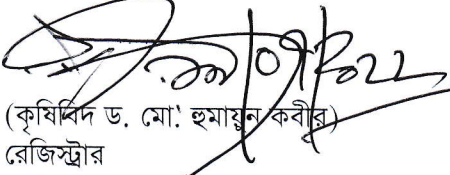 (কৃষিবিদ ড. মো: হুমায়ুন কবীর)
রেজিস্ট্রার